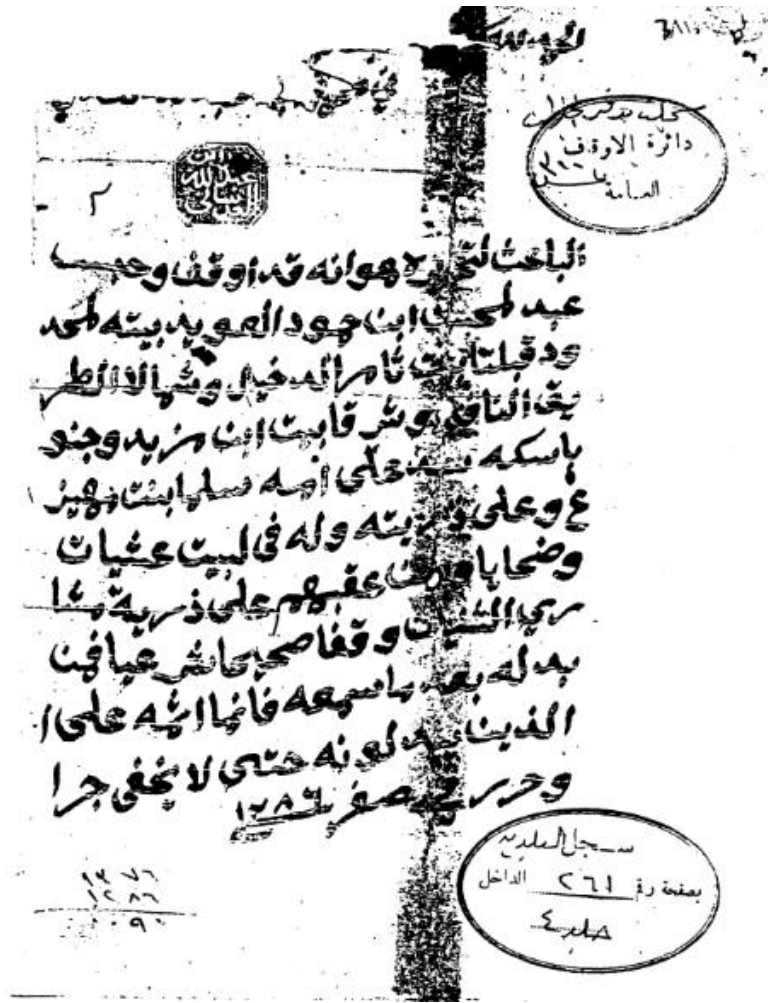 الحمد لله
دائرة الاوقف
العامة
٢
الباعث لتحرير لاهوانه قد اوقف وحبس
عبد لمحسن ابن حمود العويد بيته لمحد
ود قبلتا بيت ثامر الدخيل وشمالا الطر
يق النافذ وشرقا بيت ابن مزيد وجنو
با سكه سد على امه سلما بنت نهيز
ع وعلى ذريته وله في لبيت عشيات
وضحايا ومن عقبهم على ذرية مشا
ري الثنيان وقفا صحيحا شرعيا فمن
بدله بعد ما سمعه فانما اثمه على ا
الذين يبدلونه حتى لا يخفى جرا
وحرر في صفر ١٢٨٦
١٣٧٦
١٢٨٦
٠٩٠
سجل البلدية
بصفحة رقم ٢٦١ الداخل
جلد ٤